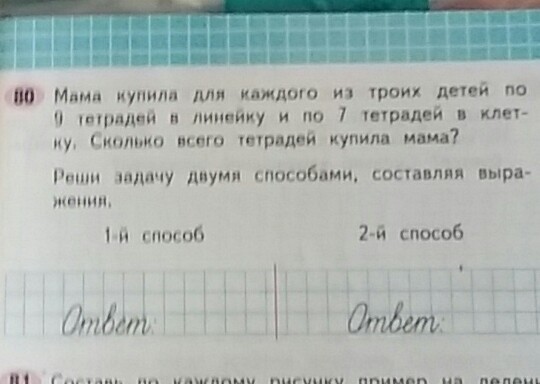 80 Мама купила для каждого из троих детей по
9 тетрадей в линейку и по 7 тетрадей в клет-
ку. Сколько всего тетрадей купила мама?
Реши задачу двумя способами, составляя выра-
жения.
1-й способ 2-й способ
Ответ: Ответ:
81 Составь по каждому рисунку пример на делени